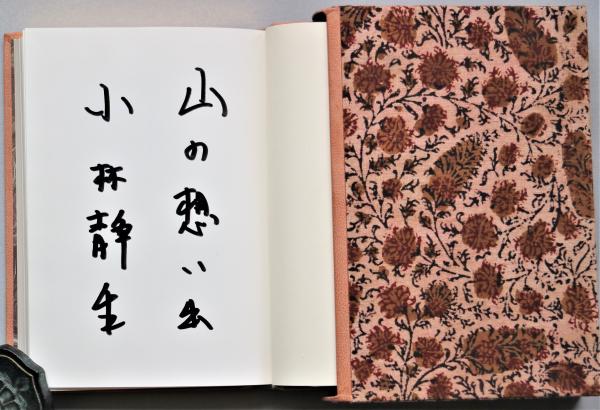 山の想い出
小林静生